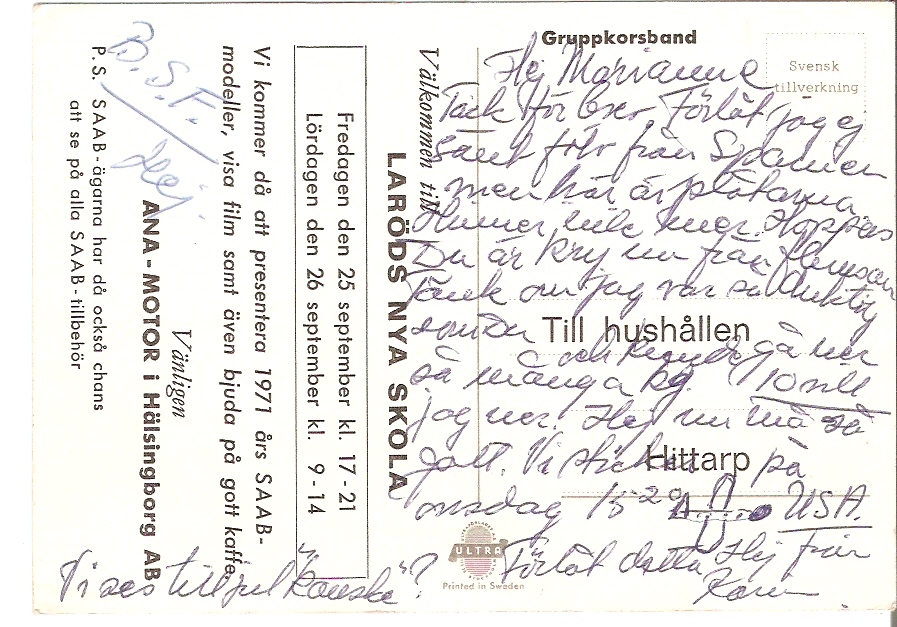 Gruppkorsband
Svensk
tillverkning
Till hushållen
Hittarp
ULTRA
Printed in Sweden
Välkommen till
LARÖDS NYA SKOLA
Fredagen den 25 september kl. 17-21
Lördagen den 26 september kl. 9-14
Vi kommer då att presentera 1971 års SAAB-
modeller, visa film samt även bjuda på gott kaffe.
Vänligen
ANA-MOTOR i Hälsingborg AB
P.S. SAAB-ägarna har då också chans
att se på alla SAAB-tillbehör
B.S.F.
Hej
Hej Marianne
Tack för brev. Förlåt jag ej
sänt från Spanien
men här är
Hinner inte mer. Hoppas
Du är kry nu från
Tänk om jag var så duktig
som Du och gå ner
så många kg. 10 vill
jag ner. Hej nu må så
gott. Vi sticker på
onsdag 15-20 USA.
Förlåt detta Hej från
Karin
Vi ses till jul "kanske"?